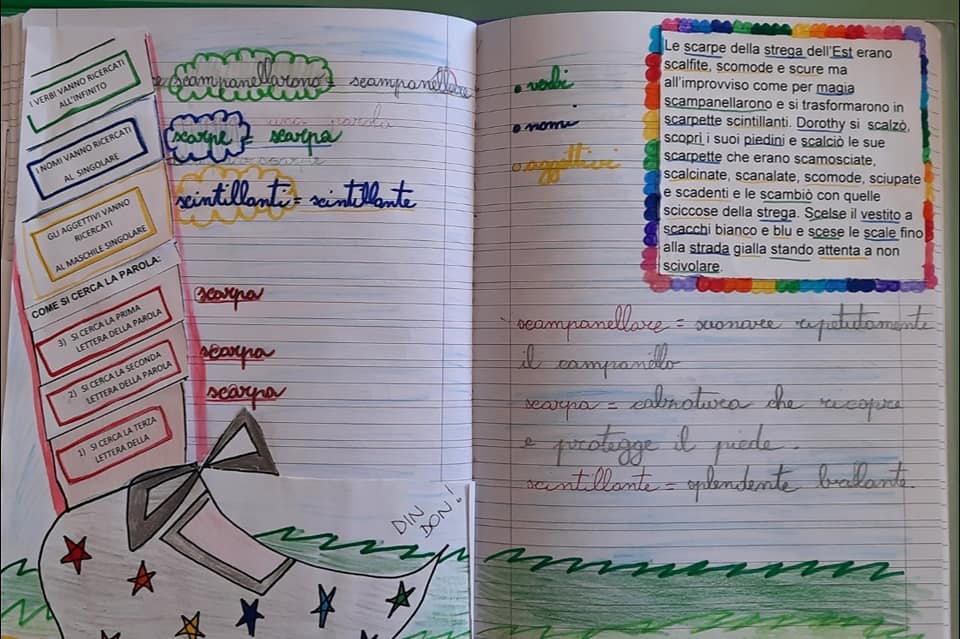 I VERBI VANNO RICERCATI
ALL'INFINITO
I NOMI VANNO RICERCATI
AL SINGOLARE
GLI AGGETTIVI VANNO
RICERCATI
AL MASCHILE SINGOLARE
COME SI CERCA LA PAROLA:
3) SI CERCA LA PRIMA
LETTERA DELLA PAROLA
2) SI CERCA LA SECONDA
LETTERA DELLA PAROLA
1) SI CERCA LA TERZA
LETTERA DELLA
scampanellarono scampanellare
scarpe = scarpa
scintillanti = scintillante
scarpa
scarpa
scarpa
DIN
DON!
verbi
nomi
aggettivi
Le scarpe della strega dell'Est erano
scalfite, scomode e scure ma
all'improvviso come per magia
scampanellarono e si trasformarono in
scarpette scintillanti. Dorothy si scalzò,
scoprì i suoi piedini e scalciò le sue
scarpette che erano scamosciate,
scalcinate, scanalate, scomode, sciupate
e scadenti e le scambiò con quelle
sciccose della strega. Scelse il vestito a
scacchi bianco e blu e scese le scale fino
alla strada gialla stando attenta a non
scivolare.
scampanellare = suonare ripetutamente
il campanello
scarpa = calzatura che ricopre
e protegge il piede.
scintillante = splendente brillante.